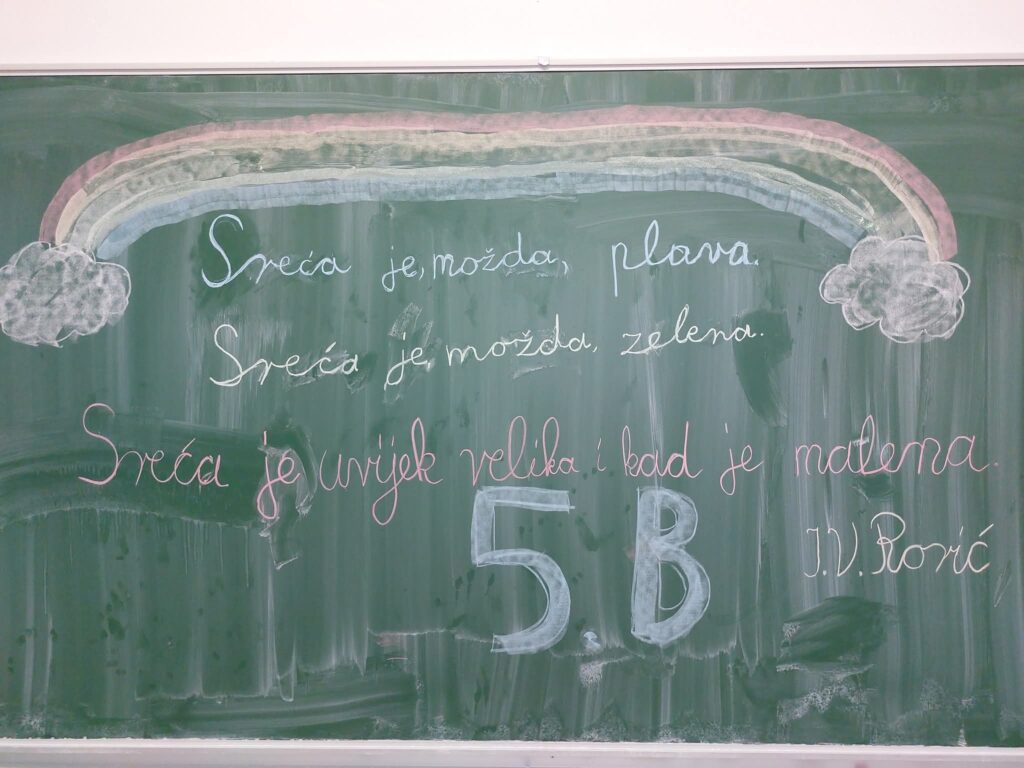 Sreća je, možda, plava.
Sreća je, možda, zelena.
Sreća je uvijek velika i kad je malena.
5.B
I.V. Rorić